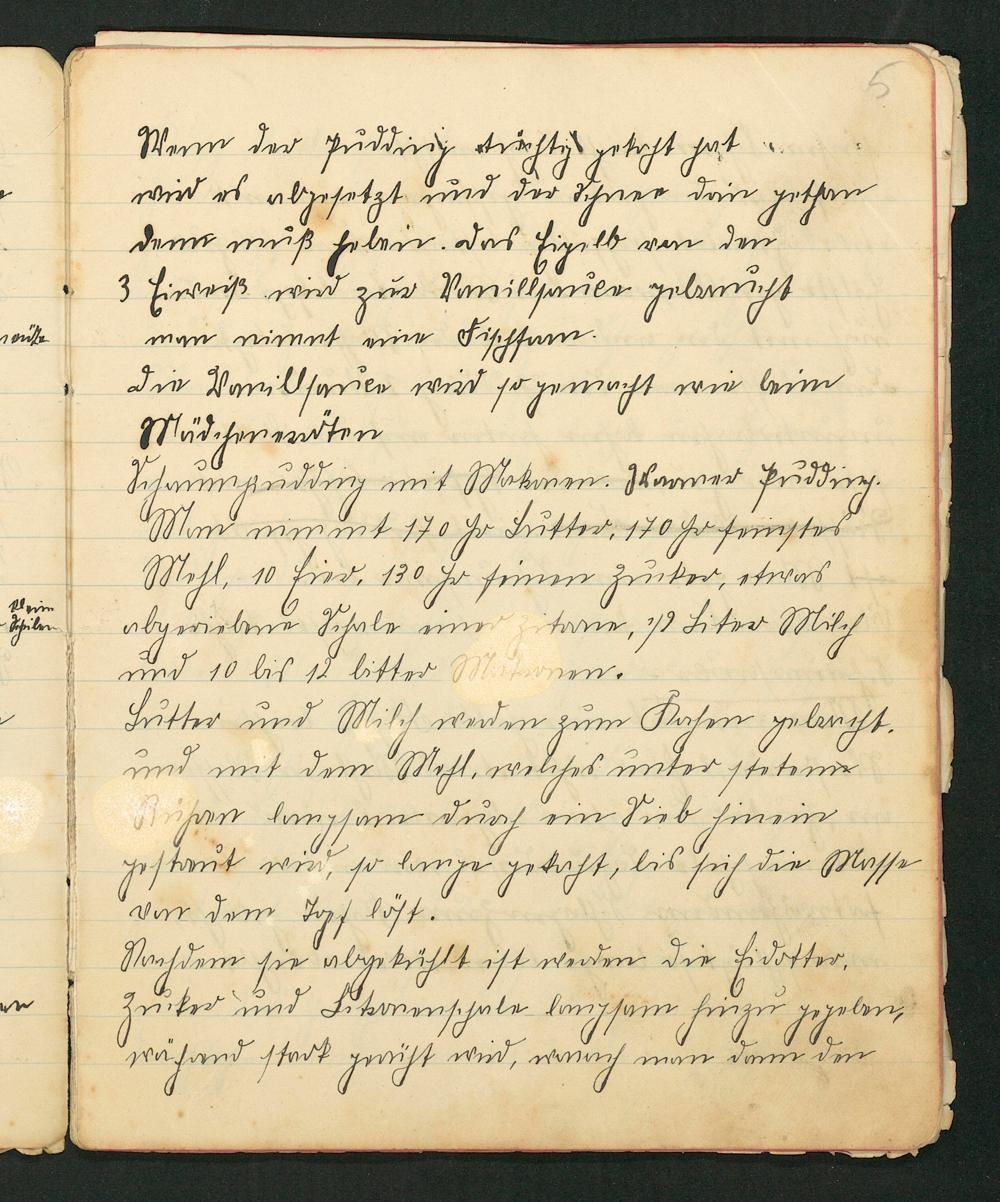 5
Wenn der Pudding tüchtig gekocht hat
wird es abgesetzt und der Schnee drin gethan
denn muß heben. Das Eigelb von den
3 Eiweiß wird zur Vanillsauce gebraucht
man nimmt eine Fischform.
Die Vanillsauce wird so gemacht wie beim
Mädchenerröten
Schaumpudding mit Makronen. Warmer Pudding.
Man nimmt 170 Gr Butter, 170 Gr feinstes
Mehl, 10 Eier, 130 Gr feinen Zucker, etwas
abgeriebene Schale einer Zitrone, 1/2 Liter Milch
und 10 bis 12 bitter Makronen.
Butter und Milch werden zum Kochen gebracht.
und mit dem Mehl, welches unter stetem
Rühren langsam durch ein Sieb hinein
gestreut wird, so lange gekocht, bis sich die Masse
von dem Topf löst.
Nachdem sie abgekühlt ist werden die Eidotter,
Zucker und Zitronenschale langsam hinzu gegeben,
während stark gerührt wird, wonach man dann den
klein